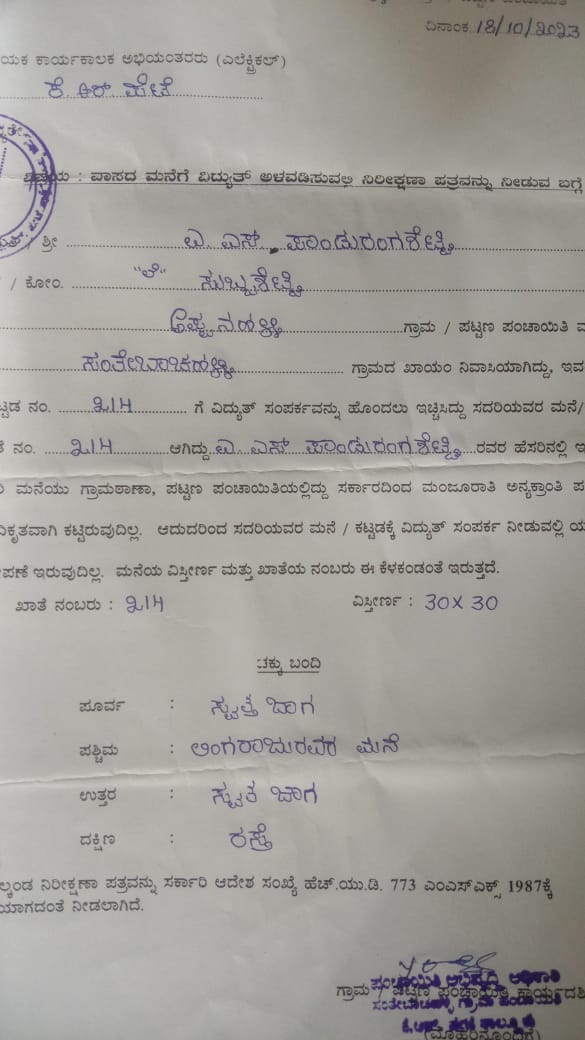 ಪಟ್ಟಣ ಪಂಚಾಯಿತಿ
ದಿನಾಂಕ 18/10/2023
ಯಕ ಕಾರ್ಯಕಾಲಕ ಅಭಿಯಂತರರು (ಎಲೆಕ್ಟ್ರಿಕಲ್)
ಕೆ ಆರ್ ಪೇಟೆ
ವಿಷಯ : ವಾಸದ ಮನೆಗೆ ವಿದ್ಯುತ್ ಅಳವಡಿಸುವಲ್ಲಿ ನಿರೀಕ್ಷಣಾ ಪತ್ರವನ್ನು ನೀಡುವ ಬಗ್ಗೆ
/ ಶ್ರೀ ಎ ಎಸ್ ಪಾಂಡುರಂಗಶೆಟ್ಟಿ
/ ಕೋಂ. "ಲೇ" ಸುಬ್ಬಶೆಟ್ಟಿ
ಗ್ರಾಮ / ಪಟ್ಟಣ ಪಂಚಾಯಿತಿ ವ
ಸಂತೇಬಾಚಹಳ್ಳಿ ಗ್ರಾಮದ ಖಾಯಂ ನಿವಾಸಿಯಾಗಿದ್ದು, ಇವ
ಟ್ಟಡ ನಂ. 214 ಗೆ ವಿದ್ಯುತ್ ಸಂಪರ್ಕವನ್ನು ಹೊಂದಲು ಇಚ್ಛಿಸಿದ್ದು ಸದರಿಯವರ ಮನೆ/
ತೆ ನಂ. 214 ಆಗಿದ್ದು ಎ ಎಸ್ ಪಾಂಡುರಂಗಶೆಟ್ಟಿ ರವರ ಹೆಸರಿನಲ್ಲಿ ಇ
ರಿ ಮನೆಯು ಗ್ರಾಮಠಾಣಾ, ಪಟ್ಟಣ ಪಂಚಾಯಿತಿಯಲ್ಲಿದ್ದು ಸರ್ಕಾರದಿಂದ ಮಂಜೂರಾತಿ ಅನ್ಯಕ್ರಾಂತಿ ಪ
ಕೃತವಾಗಿ ಕಟ್ಟಿರುವುದಿಲ್ಲ. ಆದುದರಿಂದ ಸದರಿಯವರ ಮನೆ / ಕಟ್ಟಡಕ್ಕೆ ವಿದ್ಯುತ್ ಸಂಪರ್ಕ ನೀಡುವಲ್ಲಿ ಯ
ಪಣೆ ಇರುವುದಿಲ್ಲ. ಮನೆಯ ವಿಸ್ತೀರ್ಣ ಮತ್ತು ಖಾತೆಯ ನಂಬರು ಈ ಕೆಳಕಂಡಂತೆ ಇರುತ್ತದೆ.
ಖಾತೆ ನಂಬರು : 214 ವಿಸ್ತೀರ್ಣ : 30 X 30
ಚಕ್ಕು ಬಂದಿ
ಪೂರ್ವ : ಸ್ವತ್ತ ಜಾಗ
ಪಶ್ಚಿಮ : ಮನೆ
ಉತ್ತರ : ಸ್ವತ ಜಾಗ
ದಕ್ಷಿಣ : ರಸ್ತೆ
ಲ್ಕಂಡ ನಿರೀಕ್ಷಣಾ ಪತ್ರವನ್ನು ಸರ್ಕಾರಿ ಆದೇಶ ಸಂಖ್ಯೆ ಹೆಚ್.ಯು.ಡಿ. 773 ಎಂಎಸ್ಎಕ್ಸ್ 1987ಕ್ಕೆ
ಯಾಗದಂತೆ ನೀಡಲಾಗಿದೆ.
ಪಂಚಾಯಿತಿ ಅಭಿವೃದ್ಧಿ ಅಧಿಕಾರಿ
ಗ್ರಾಮ / ಪಟ್ಟಣ ಪಂಚಾಯಿತಿ ಕಾರ್ಯದರ್ಶಿ
ಸಂತೇಬಾಚಹಳ್ಳಿ ಗ್ರಾಮ ಪಂಚಾಯಿತಿ
(ಮೊಹರಿನೊಂದಿಗೆ)